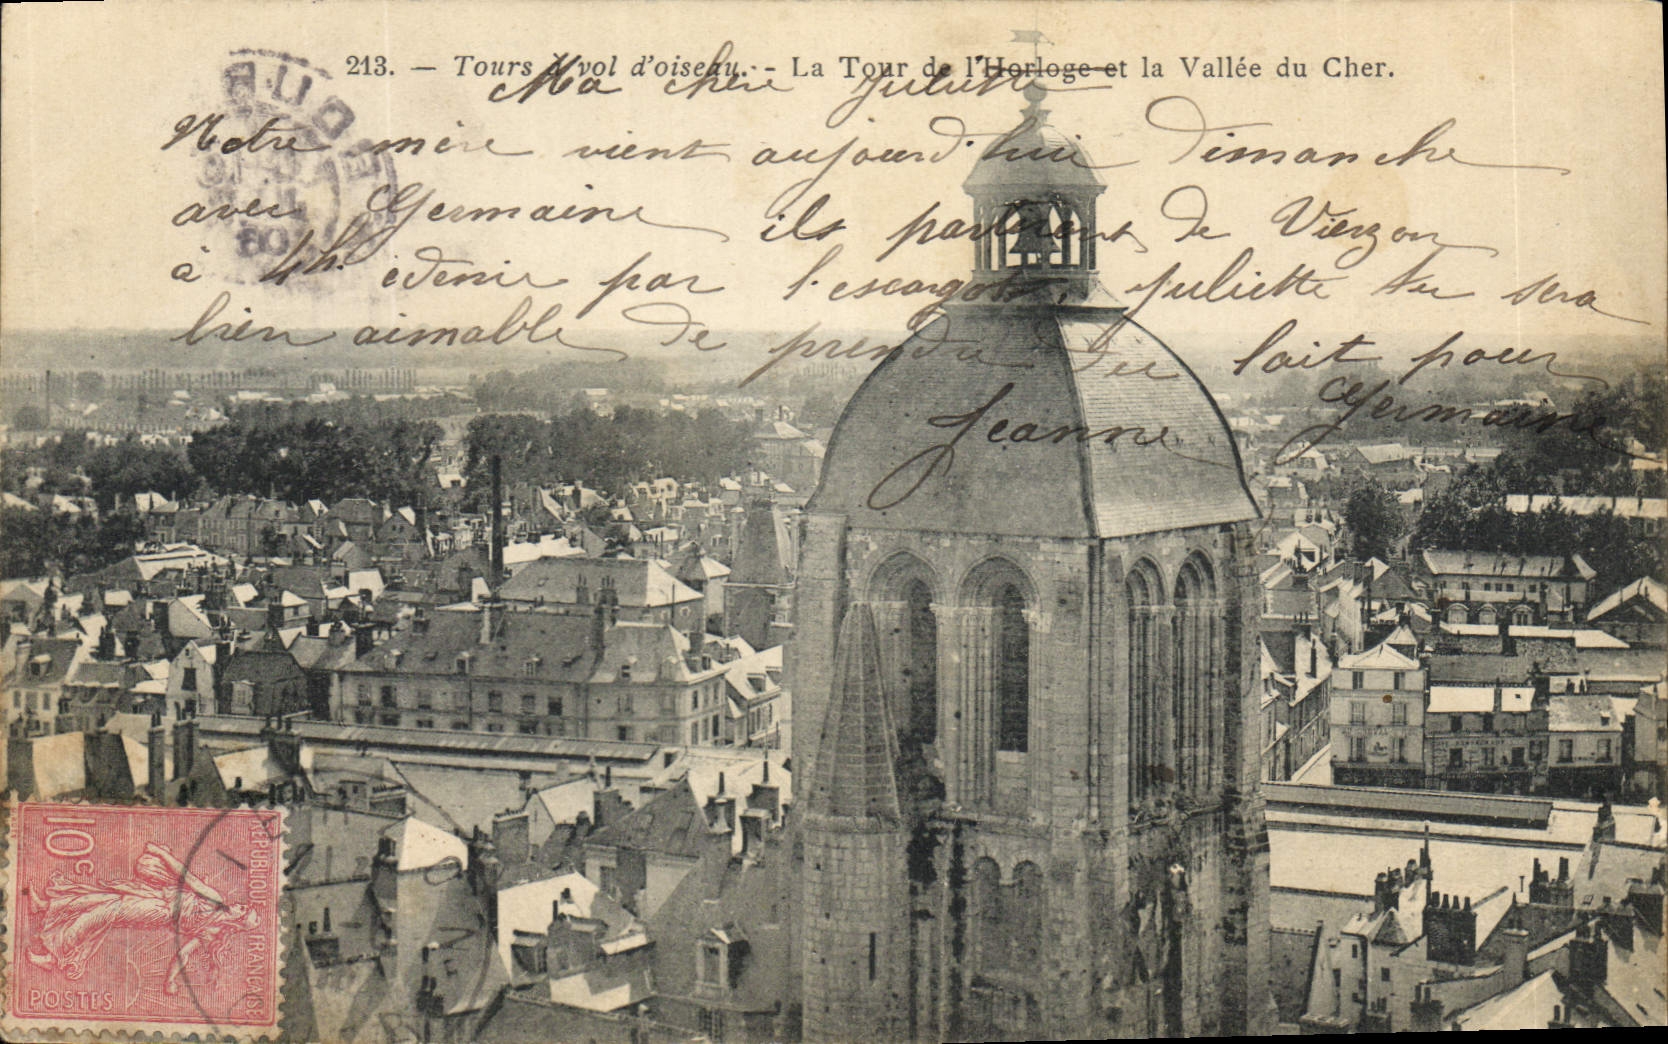 213. — Tours à vol d'oiseau. - La Tour de l'Horloge et la Vallée du Cher.
Ma chère Juliette
Notre mère vient aujourd'hui Dimanche
avec Germaine ils partiront de Vierzon
à 4h. par l'escargot, Juliette tu sera
bien aimable de prendre du lait pour
Germaine
Jeanne
10c
REPUBLIQUE FRANÇAISE
POSTES